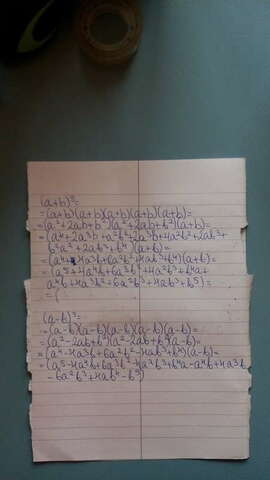 (a+b)⁵=
=(a+b)(a+b)(a+b)(a+b)(a+b)=
=(a²+2ab+b²)(a²+2ab+b²)(a+b)=
=(a⁴+2a³b+a²b²+2a³b+4a²b²+2ab³+
b²a²+2ab³+b⁴)(a+b)=
=(a⁴+4a³b+6a²b²+4ab³+b⁴)(a+b)=
=(a⁵+4a⁴b+6a³b²+4a²b³+b⁴a+
a⁴b+4a³b²+6a²b³+4ab⁴+b⁵)=
=(
(a-b)⁵=
=(a-b)(a-b)(a-b)(a-b)(a-b)=
=(a²-2ab+b²)(a²-2ab+b²)(a-b)=
=(a⁴-4a³b+6a²b²-4ab³+b⁴)(a-b)=
=(a⁵-4a⁴b+6a³b²-4a²b³+b⁴a-a⁴b+4a³b
-6a²b³+4ab⁴-b⁵)